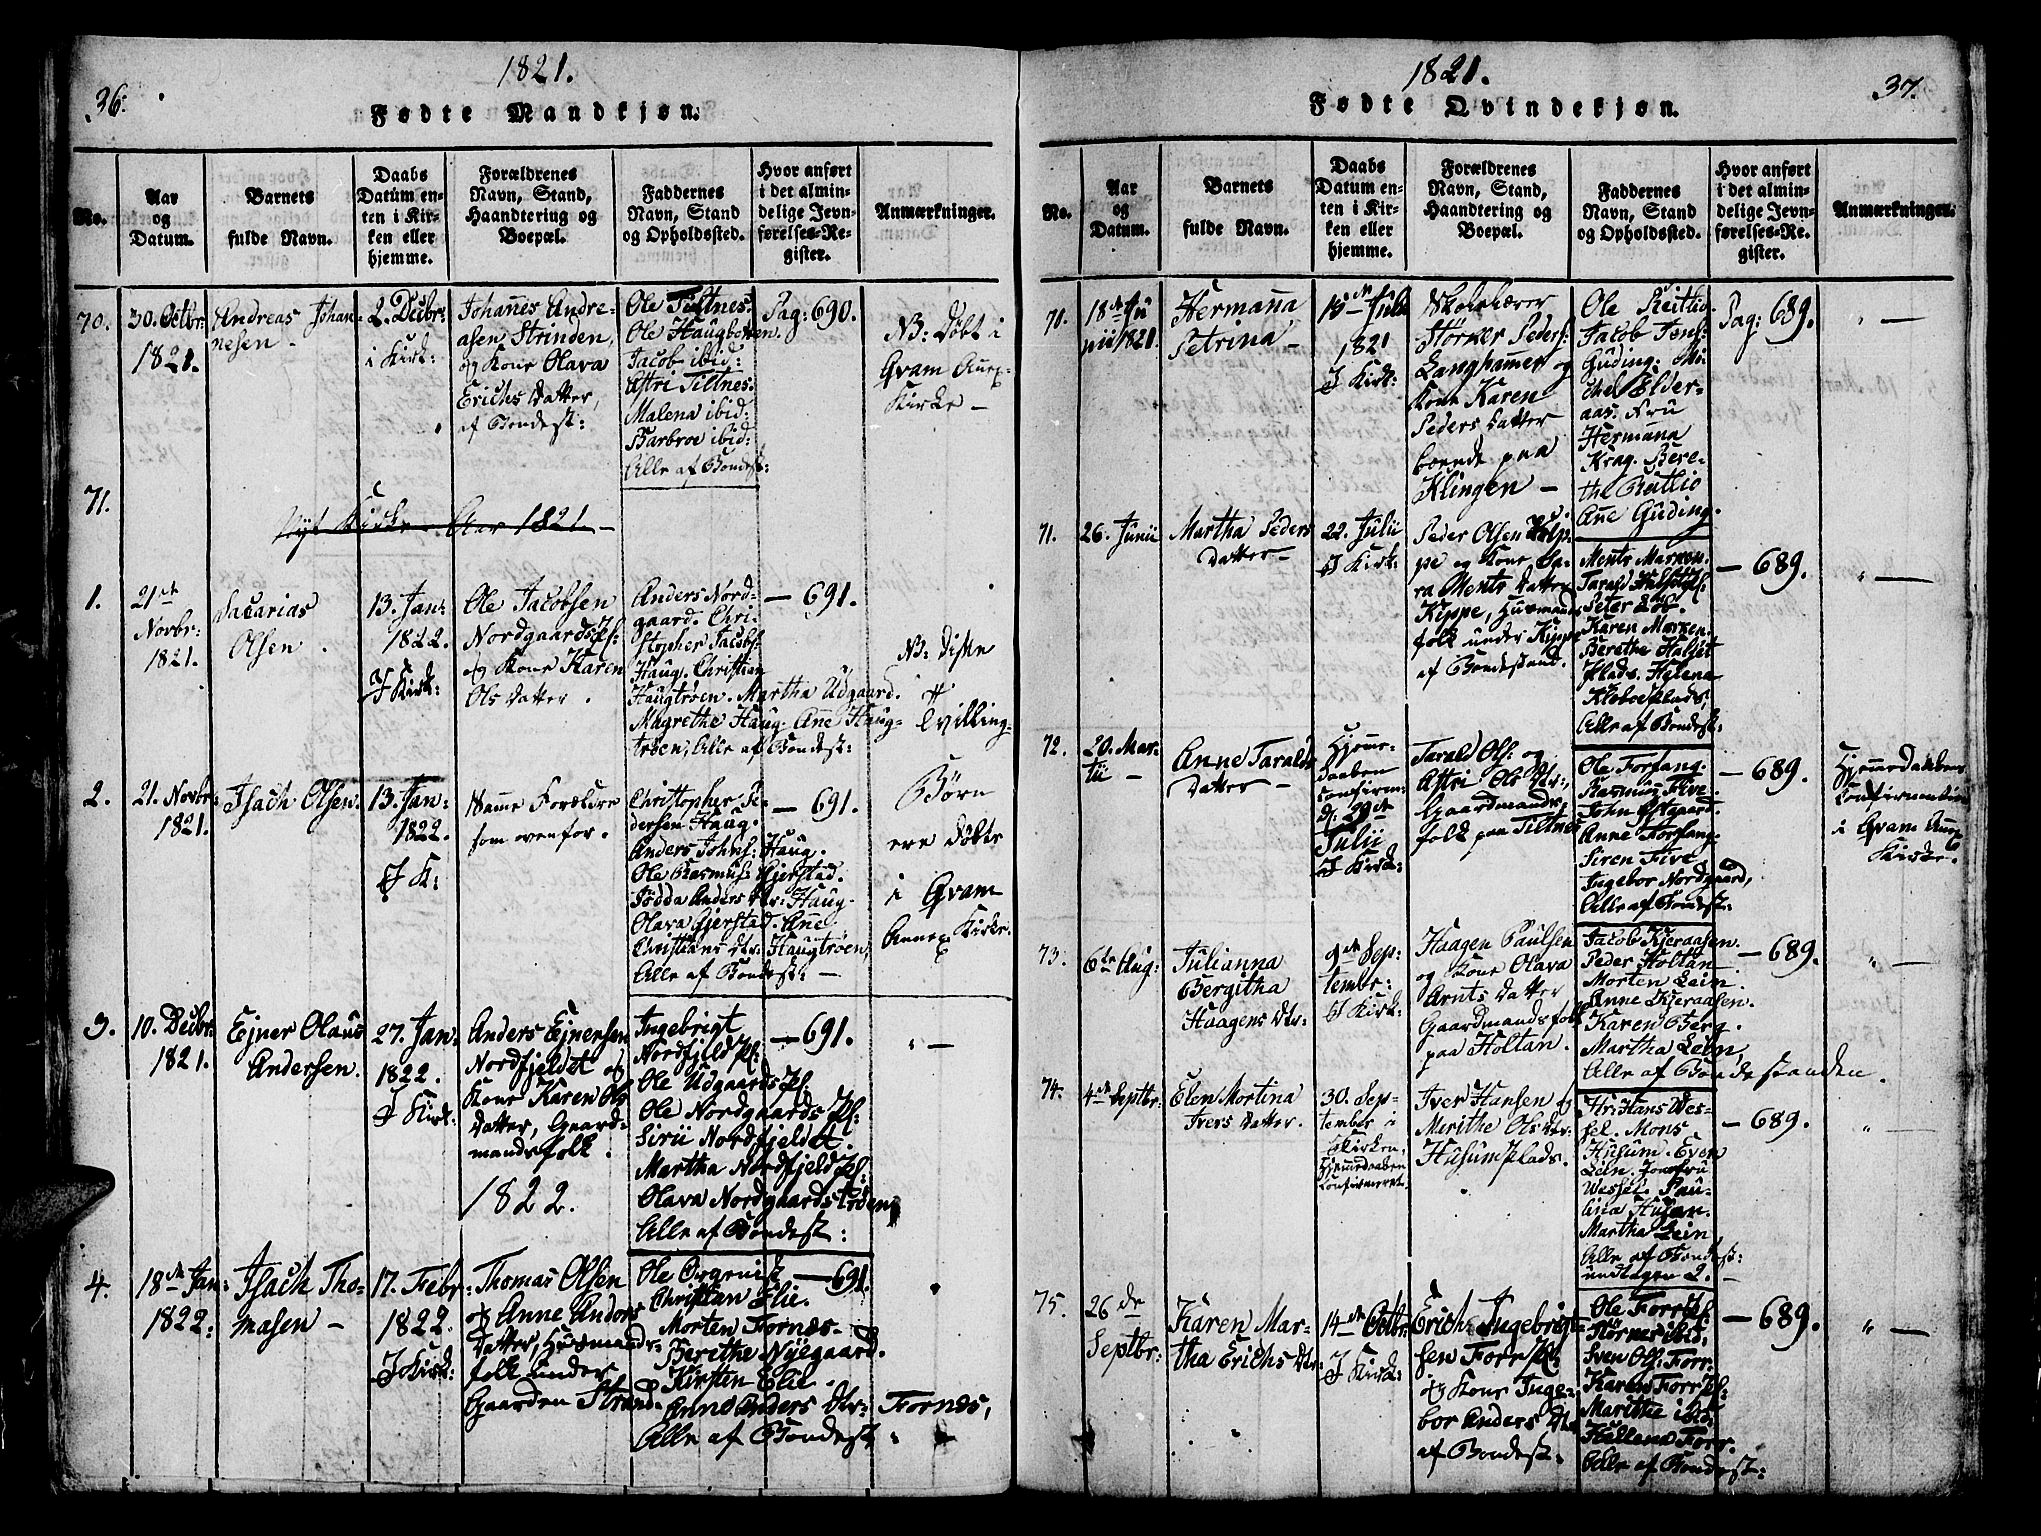 36.
1821.
Fødte Mandkjøn.
No.
Aar
og
Datum.
Barnets
fulde Navn.
Daabs
Datum en-
ten i Kir-
ken eller
hjemme.
Forældrenes
Navn, Stand,
Haandtering og
Boepæl.
Faddernes
Navn, Stand
og Opholdssted.
Hvor anført
i det almin-
delige Jevn-
førelses-Re-
gister.
Anmærkninger.
70.
30. Octbr:
1821.
Andreas Johan-
nesen -
2. Decbr:
i Kirk:
Johannes Andre-
asen Strinden,
og Kone Olava
Erichs Datter,
af Bondest:
Ole Tiltnes.
Ole Haugbotten.
Jacob ibid:
Astri Tiltnes.
Malena ibid:
Barbroe ibid:
Alle af Bondest:
Pag: 690.
NB: Døbt i
Qvam Anex-
Kirke -
71.
Nyt Kirke-Aar 1821. -
1.
21de
Novbr:
1821.
Zacarias
Olsen.
13. Jan:
1822.
I Kirk:
Ole Jacobsen
Nordgaards Pl:
og Kone Karen
Ols Datter.
Anders Nord-
gaard. Chri-
stopher Jacobs:
Haug. Christian
Haugtrøen. Martha Udgaard.
Magrethe Haug. Ane Haug-
trøen, Alle af Bondest:
— 691.
NB: Diske
Tvilling-
2.
21. Novbr:
1821.
Isach Olsen.
13. Jan:
1822.
I K:
Samme Forældre
som ovenfor.
Christopher Pe-
dersen Haug.
Anders Johns: Haug.
Ole Rasmus: Gjerstad.
Jødda Anders Dtr: Haug.
Olava Gjerstad. Ane
Christians Dtr: Haugtrøen,
Alle af Bondest: —
— 691.
Børn
ere døbte
i Qvam
Annex Kirke.
3.
10. Decbr:
1821.
Ejner Olaus
Andersen.
27. Jan:
1822.
I Kirk:
Anders Ejnersen
Nordfjeldet og
Kone Karen Ols
Datter, Gaard-
mandsfolk.
Ingebrigt
Nordfjeld Pl:
Ole Udgaards Pl:
Ole Nordgaards Pl:
Sirii Nordfjeldet.
Martha Nordfjeld Pl:
Olava Nordgaards trøen
Alle af Bondest:
— 691.
„ —
1822.
4.
18de Jan:
1822.
Isach Tho-
masen —
17. Febr:
1822.
I Kirk:
Thomas Olsen
og Anne Anders
Datter, Huusmands-
folk under
Gaarden Strand
Ole Orgenist
Christian Elie.
Morten Fornæs.
Berithe Nyegaard.
Kirsten Elie.
Anne Anders Dtr: Fornæs,
Alle af Bondest:
— 691.
1821.
37.
Fødte Qvindekjøn.
No.
Aar
og
Datum.
Barnets
fulde Navn.
Daabs
Datum en-
ten i Kir-
ken eller
hjemme.
Forældrenes
Navn, Stand,
Haandtering og
Boepæl.
Faddernes
Navn, Stand
og Opholdssted.
Hvor anført
i det almin-
delige Jevn-
førelses-Re-
gister.
Anmærkninger.
70.
18de Ju
nii 1821.
Hermanna
Petrina -
15de Julii
1821
I Kirk:
Skolelærer
Størker Peders:
Langhammer og
Kone Karen
Peders Datter
boende paa
Klingen —
Ole Reitlio.
Jacob Jens:
Guding. Mi-
chel Elder-
aas. Fru
Hermana
Krag. Bere-
the Reitlio
Ane Guding.
Pag: 689.
„ —
71.
26. Junii
Martha Peders
Datter -
22. Julii
I Kirk:
Peder Olsen Kip-
pe og Kone Sa-
ra Ments Datter
Kippe, Huusmands
folk under Kippe
af Bondestand.
Ments Marken.
Tarald Halset Pl:
Peter Eid.
Karen Marken.
Berithe Halset
Plads. Helena
Kleboe Plads,
Alle af Bondest:
— 689.
„ —
72.
20. Mar-
tii —
Anne Taralds
Datter -
Hjemme-
daaben
Confirm:
d. 29de
Julii
I Kirk:
Tarald Ols: og
Astri Ols Dtr:,
Gaardmands-
folk paa Tiltnes
Ole Forfang.
Rasmus Five.
John Østgaard.
Anne Forfang.
Siren Five
Ingebor Nordgaard,
Alle af Bondest:
— 689.
Hjemmedaaben
Confirmeret
i Qvam Anex
Kirke.
73.
6te Aug:
Julianna
Bergitha
Haagens Dtr:
9de Sep-
tembr:
I Kirk:
Haagen Paulsen
og Kone Olava
Arnts Datter
Gaardmandsfolk
paa Holtan.
Jacob Kjeraasen.
Peder Holtan.
Morten Lein.
Anne Kjeraasen.
Karen Berg.
Martha Lein,
Alle af Bondestanden.
— 689.
„ —
74.
4de Septbr:
Elen Mortina
Ivers Datter.
30. Sep-
tember i
Kirken,
Hjemmedaaben
Confirmeret.
Iver Hansen og
Merithe Ols Dtr:
Husum Plads.
Hr: Hans Wes-
sel. Mons
Husum. Even
Lein. Jomfru
Wessel. Pau-
lina Husan.
Martha Lein
Alle af Bondest:
undtagen 2. —
— 689.
„ —
75.
26de
Septbr:
Karen Mar-
tha Erichs Dtr:
14de Octbr:
I Kirk:
Erich Ingebrigt-
sen Forr Pl:
og Kone Inge-
bor Anders Dtr
af Bondest:
Ole Forr Pl:
Størker ibid.
Sven Ols: Forr.
Karen Forr Pl:
Marithe ibid.
Hullana Forr.
Alle af Bondest:
— 689.
„ —